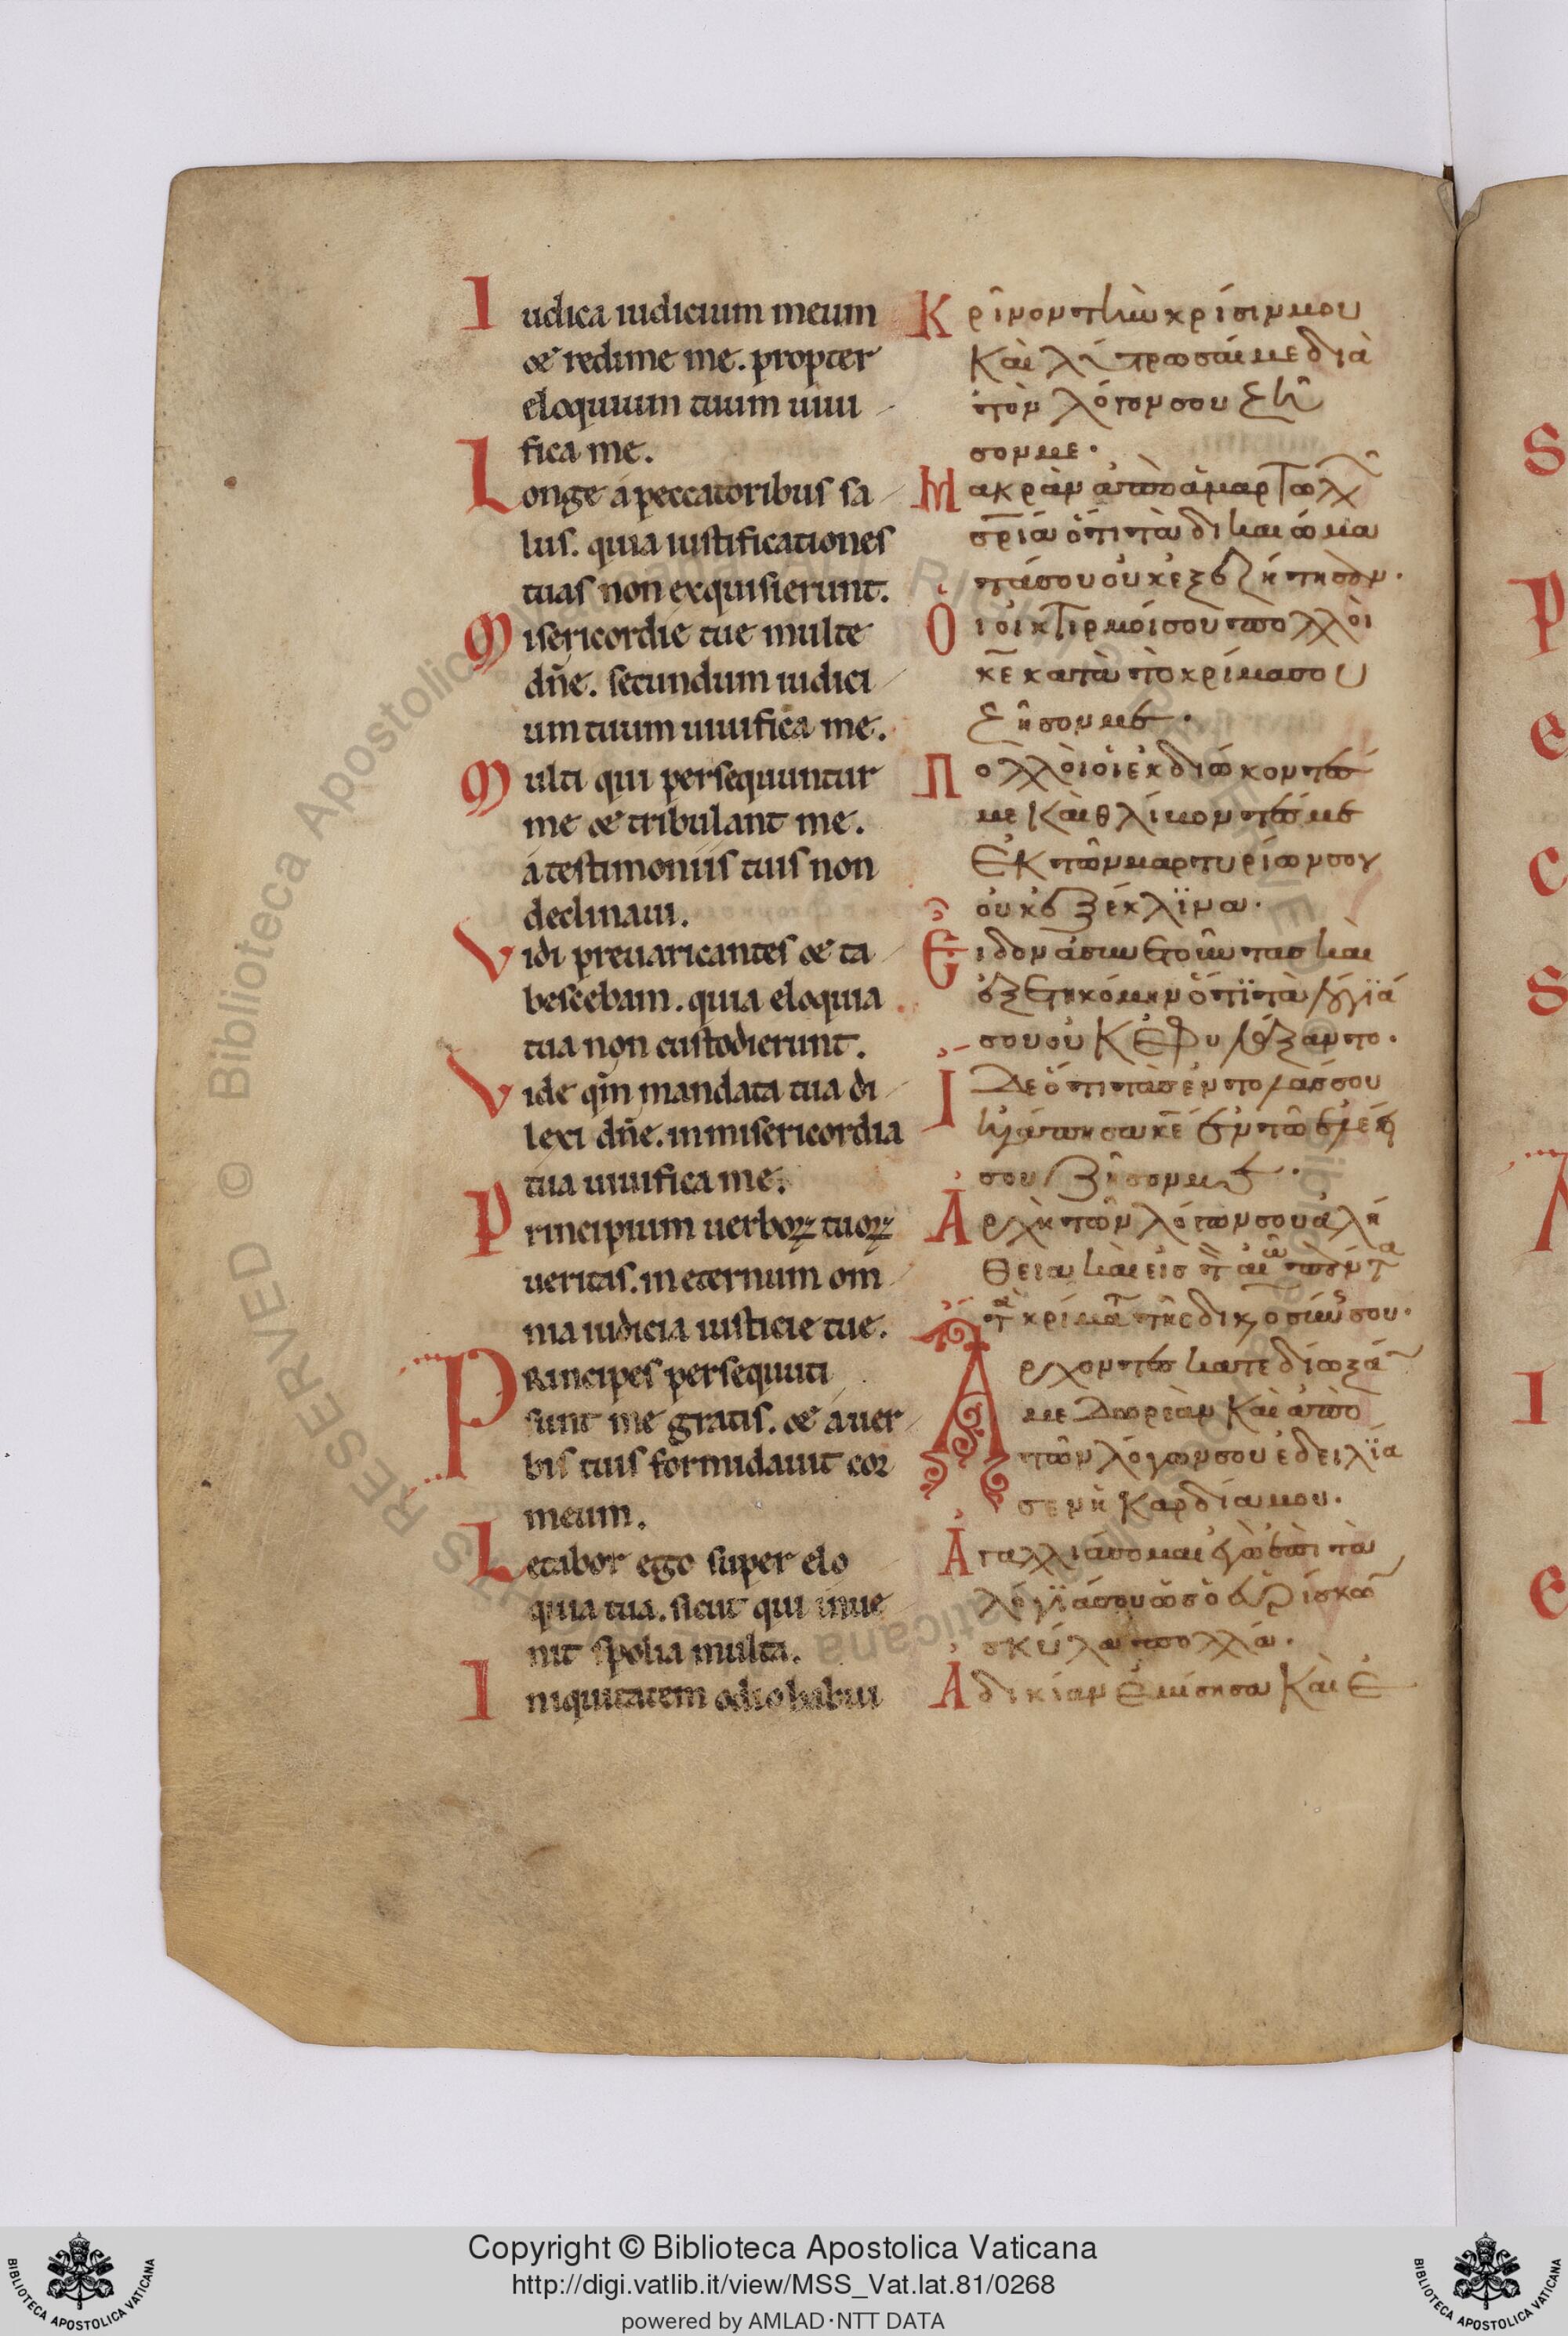 Iudica iudicium meum
& redime me. propter
eloquium tuum uiui
fica me.
Longe a peccatoribus sa
lus. quia iustificationes
tuas non exquisierunt.
Misericordie tue multe
dñe. secundum iudici
um tuum uiuifica me.
Multi qui persequuntur
me & tribulant me.
a testimoniis tuis non
declinaui.
Vidi preuaricantes & ta
bescebam. quia eloquia
tua non custodierunt.
Vide qm̄ mandata tua di
lexi dñe. in misericordia
tua uiuifica me.
Principium uerboꝝ tuoꝝ
ueritas. in eternum om
nia iudicia iusticie tue.
Principes persequuti
sunt me gratis. & a uer
bis tuis formidauit cor
meum.
Letabor ego super elo
quia tua. sicut qui inue
nit spolia multa.
Iniquitatem odio habui
Κρῖνον τὴν κρίσιν μου
Καὶ λύτρωσαί με διὰ
τὸν λόγον σου ζῆ
σον με.
Μακρὰν ἀπὸ ἁμαρτωλῶ̃
σρ̅ία ὅτι τὰ δικαιώμα
τά σου οὐκ ἐξεζήτησαν.
Ὁι οἰκτιρμοί σου πολλοὶ
κ̅ε κατὰ τὸ κρίμα σου
ζῆσον με.
Πολλοὶ οἱ ἐκδιώκοντές
με Καὶ θλίβοντές με
Ἐκ τῶν μαρτυρίων σου
οὐκ ἐξέκλϊνα.
Εἶδον ἀσυνετοῦντας καὶ
ἐξετηκόμην ὅτϊ τὰ λόγϊά
σου οὐΚ Ἐφυλάξαντο.
Ἴδε ὅτι τὰς ἐντολάς σου
ἠγάπησα κ̅ε ἐν τῶ ἐλέει
σου ζῆσον με.
Ἀρχὴ τῶν λόγων σου ἀλή
θεια καὶ εἰς
κρίμα τῆς δικαιοσύνης σου.
Ἄρχοντες κατεδίωξά
με Δωρεὰν Καὶ ἀπὸ
τῶν λόγων σου ἐδειλϊα
σεν ἡ Καρδία μου.
Ἀγαλλιάσομαι ἐγὼ ἐπὶ τὰ
λόγϊά σου ὡς ὁ εὑρίσκω
σκύλα πολλά.
Ἀδικίαν Ἐμίσησα Καὶ Ἐ
Copyright © Biblioteca Apostolica Vaticana
http://digi.vatlib.it/view/MSS_Vat.lat.81/0268
powered by AMLAD·NTT DATA